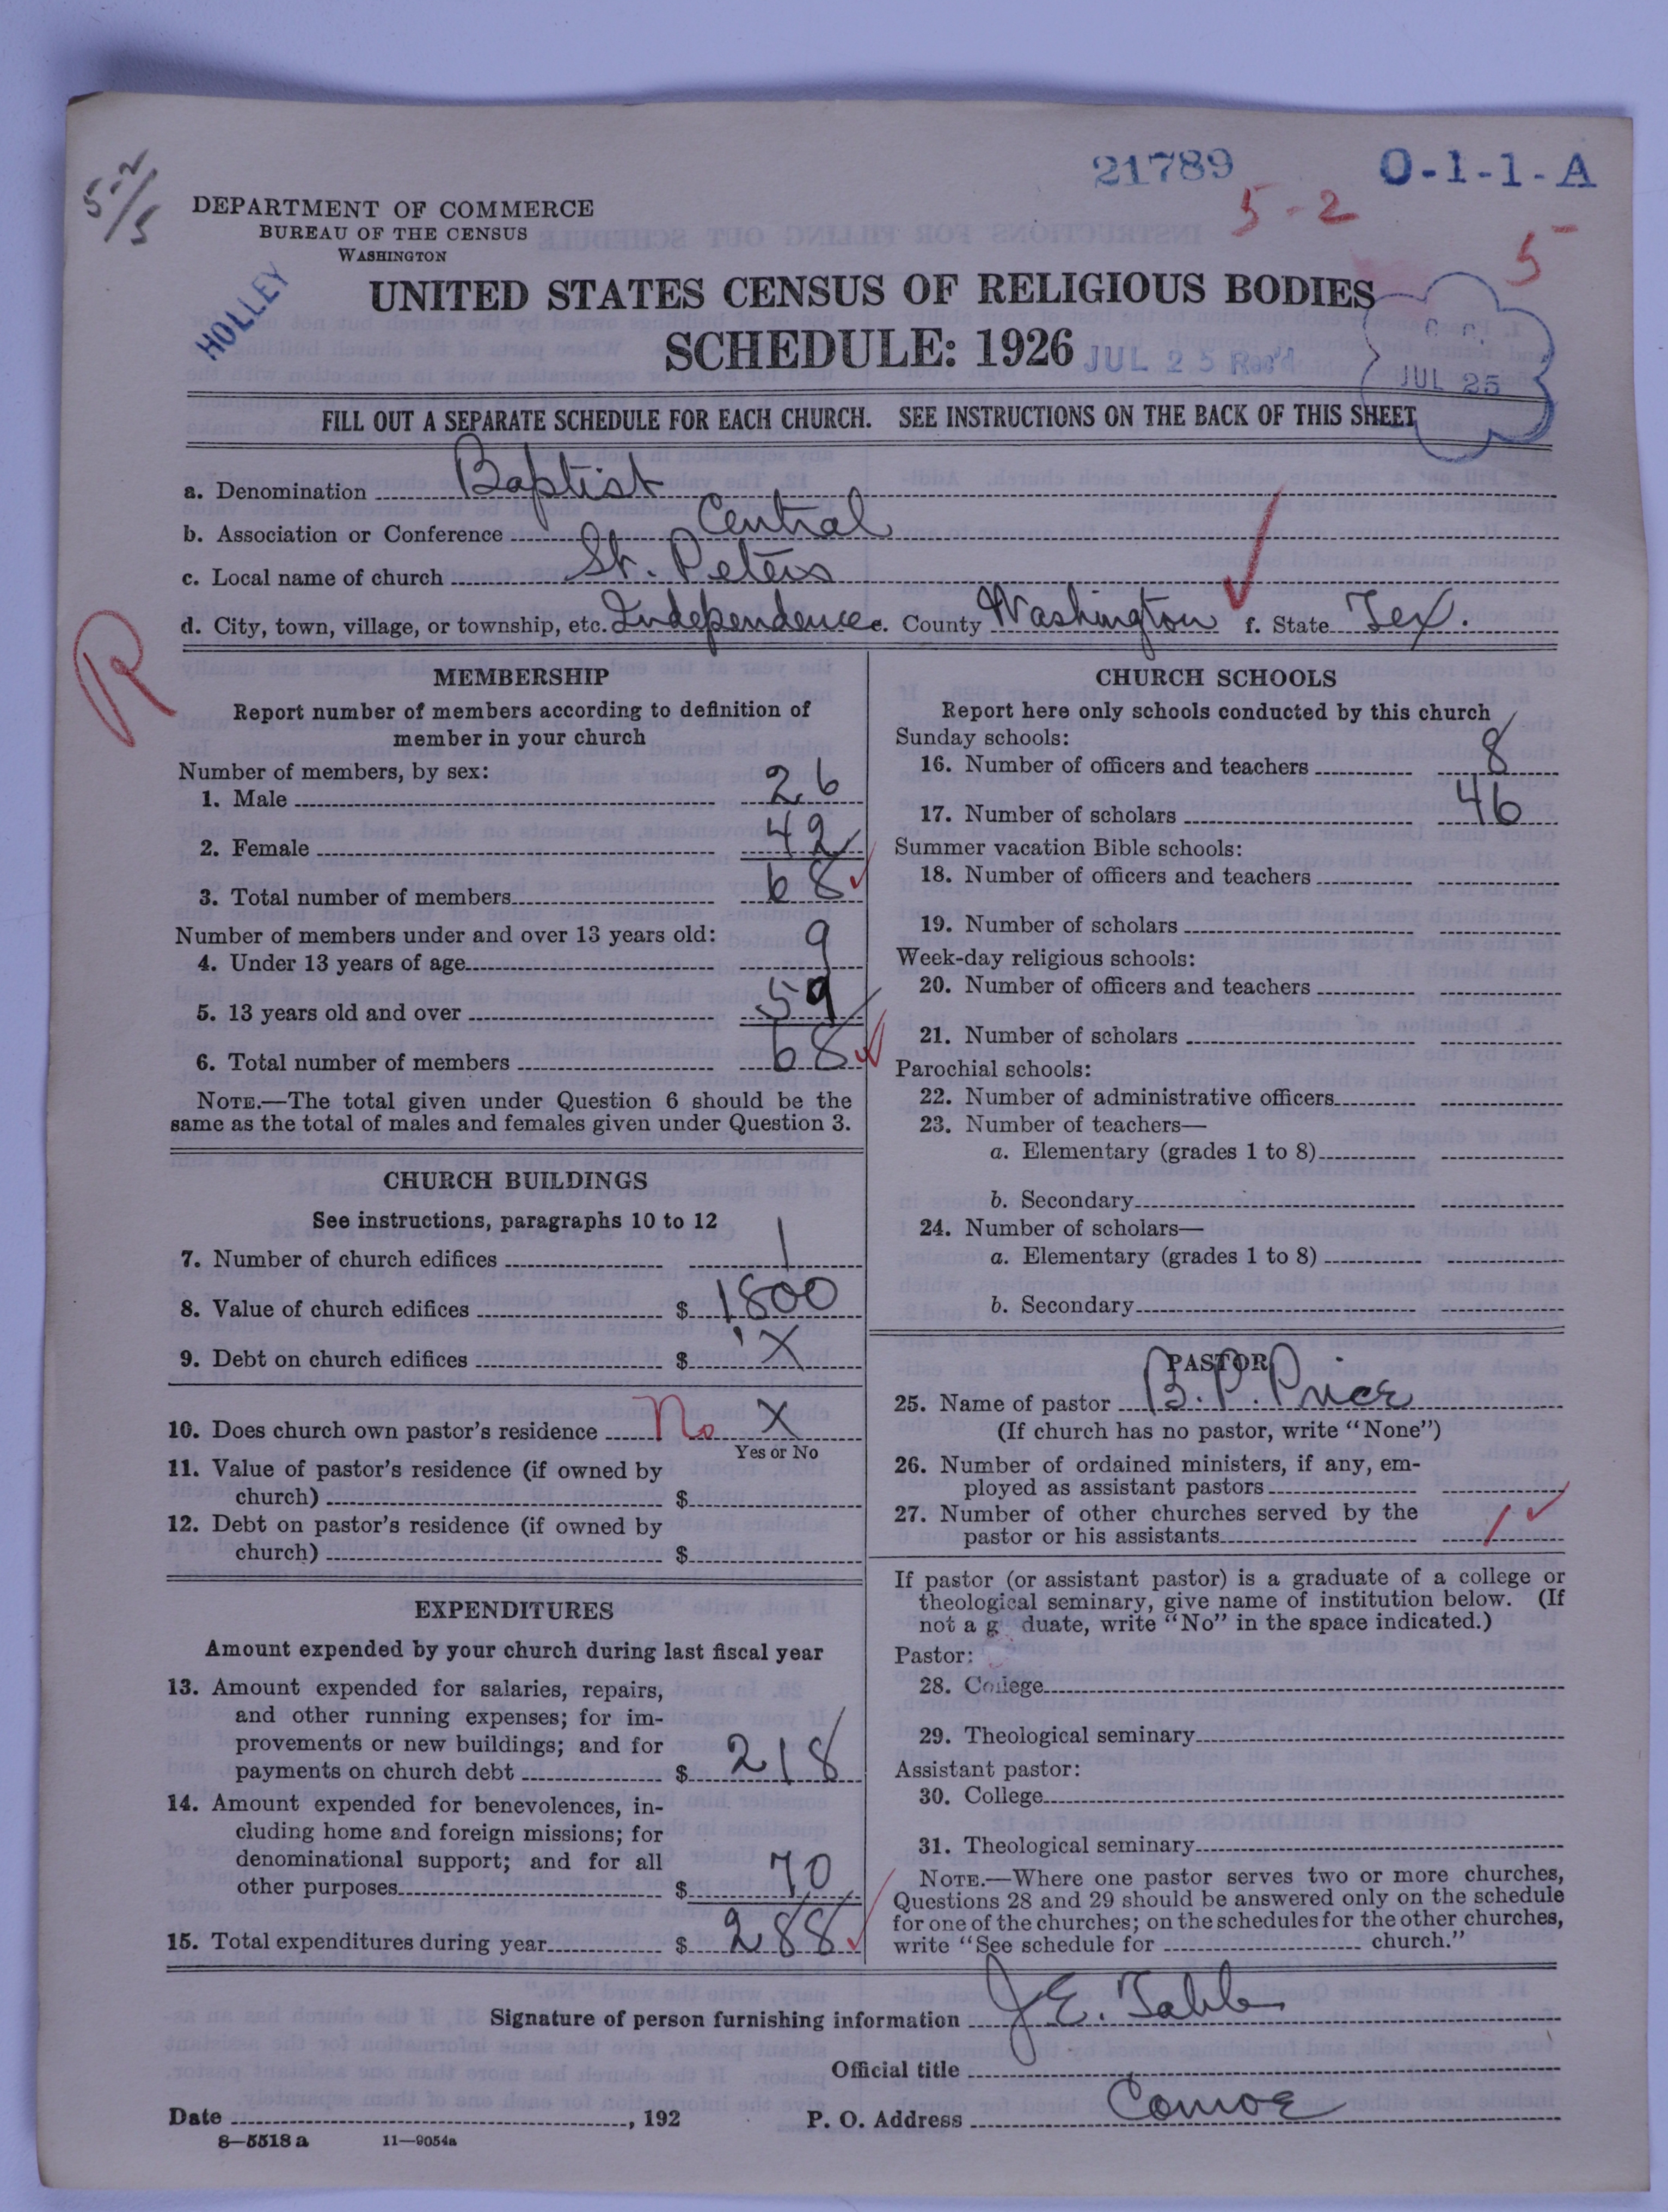 21789 O-1-1-A
5-2/5
5-2
5
DEPARTMENT OF COMMERCE
BUREAU OF THE CENSUS
WASHINGTON
HOLLEY
UNITED STATES CENSUS OF RELIGIOUS BODIES
SCHEDULE: 1926
JUL 25 Rec'd
JUL 25
FILL OUT A SEPARATE SCHEDULE FOR EACH CHURCH. SEE INSTRUCTIONS ON THE BACK OF THIS SHEET
a. Denomination Baptist
b. Association or Conference Central
c. Local name of church St. Peters
d. City, town, village, or township, etc. Independence e. County Washington f. State Tex.
R
MEMBERSHIP
Report number of members according to definition of
member in your church
Number of members, by sex:
1. Male 26
2. Female 42
3. Total number of members 68
Number of members under and over 13 years old:
4. Under 13 years of age 9
5. 13 years old and over 59
6. Total number of members 68
NOTE.—The total given under Question 6 should be the
same as the total of males and females given under Question 3.
CHURCH BUILDINGS
See instructions, paragraphs 10 to 12
7. Number of church edifices 1
8. Value of church edifices $ 1,800
9. Debt on church edifices $ X
10. Does church own pastor's residence No X
Yes or No
11. Value of pastor's residence (if owned by
church) $
12. Debt on pastor's residence (if owned by
church) $
EXPENDITURES
Amount expended by your church during last fiscal year
13. Amount expended for salaries, repairs,
and other running expenses; for im-
provements or new buildings; and for
payments on church debt $ 218
14. Amount expended for benevolences, in-
cluding home and foreign missions; for
denominational support; and for all
other purposes $ 70
15. Total expenditures during year $ 288
CHURCH SCHOOLS
Report here only schools conducted by this church
Sunday schools:
16. Number of officers and teachers 8
17. Number of scholars 46
Summer vacation Bible schools:
18. Number of officers and teachers
19. Number of scholars
Week-day religious schools:
20. Number of officers and teachers
21. Number of scholars
Parochial schools:
22. Number of administrative officers
23. Number of teachers—
a. Elementary (grades 1 to 8)
b. Secondary
24. Number of scholars—
a. Elementary (grades 1 to 8)
b. Secondary
PASTOR
25. Name of pastor B. P. Price
(If church has no pastor, write "None")
26. Number of ordained ministers, if any, em-
ployed as assistant pastors
27. Number of other churches served by the
pastor or his assistants
If pastor (or assistant pastor) is a graduate of a college or
theological seminary, give name of institution below. (If
not a g duate, write "No" in the space indicated.)
Pastor:
28. College
29. Theological seminary
Assistant pastor:
30. College
31. Theological seminary
NOTE.—Where one pastor serves two or more churches,
Questions 28 and 29 should be answered only on the schedule
for one of the churches; on the schedules for the other churches,
write "See schedule for church."
Signature of person furnishing information J. E. Tabb
Official title
Date , 192 P. O. Address Conroe
8—5518 a 11—9054a